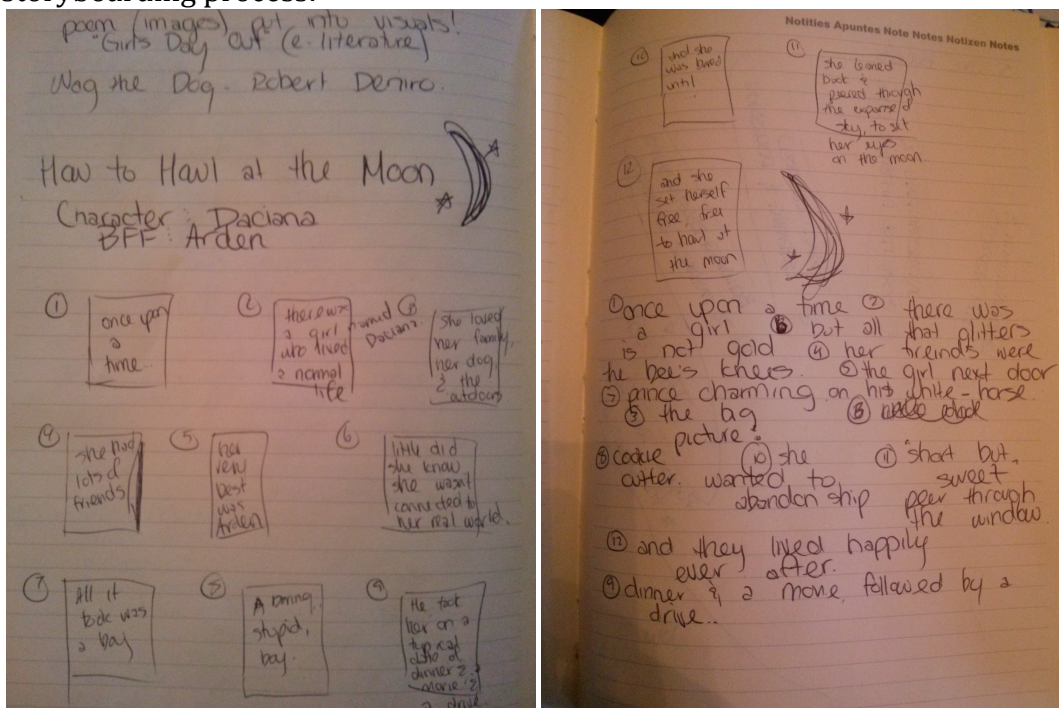 storyboarding process.
poem (images) put into visuals!
"Girls Day Out (e-literature)
Wag the Dog. Robert Deniro.
How to Howl at the Moon
Character: Daciana
BFF: Arden
①
once upon
a
time..
②
there was
a girl named
who lived Daciana.
a normal
life
③
she loved
her family,
her dog,
& the
outdoors
④
she had
lots of
friends
⑤
her
very
best
was
Arden
⑥
little did
she know
she wasn't
connected to
her real world.
⑦
All it
took was
a boy
⑧
A boring,
stupid,
boy.
⑨
He took
her on a
typical
date of
dinner & a
movie &
a drive.
Notities Apuntes Note Notes Notizen Notes
⑩
and she
was bored
until
⑪
she leaned
back &
peered through
the expanse of
sky, to set
her eyes
on the moon.
⑫
and she
set herself
free, free
to howl at
the moon
① once upon a time ② there was
a girl ⑥ but all that glitters
is not gold ④ her freinds were
the bee's knees. ⑤ the girl next door
⑦ prince charming on his white-horse.
③ the big ⑧
picture?
⑧ cookie ⑩ she ⑪ "short but,
cutter. wanted to sweet
abandon ship peer through
the window.
⑫ and they lived happily
ever after.
⑨ dinner & a movie, followed by a
drive..